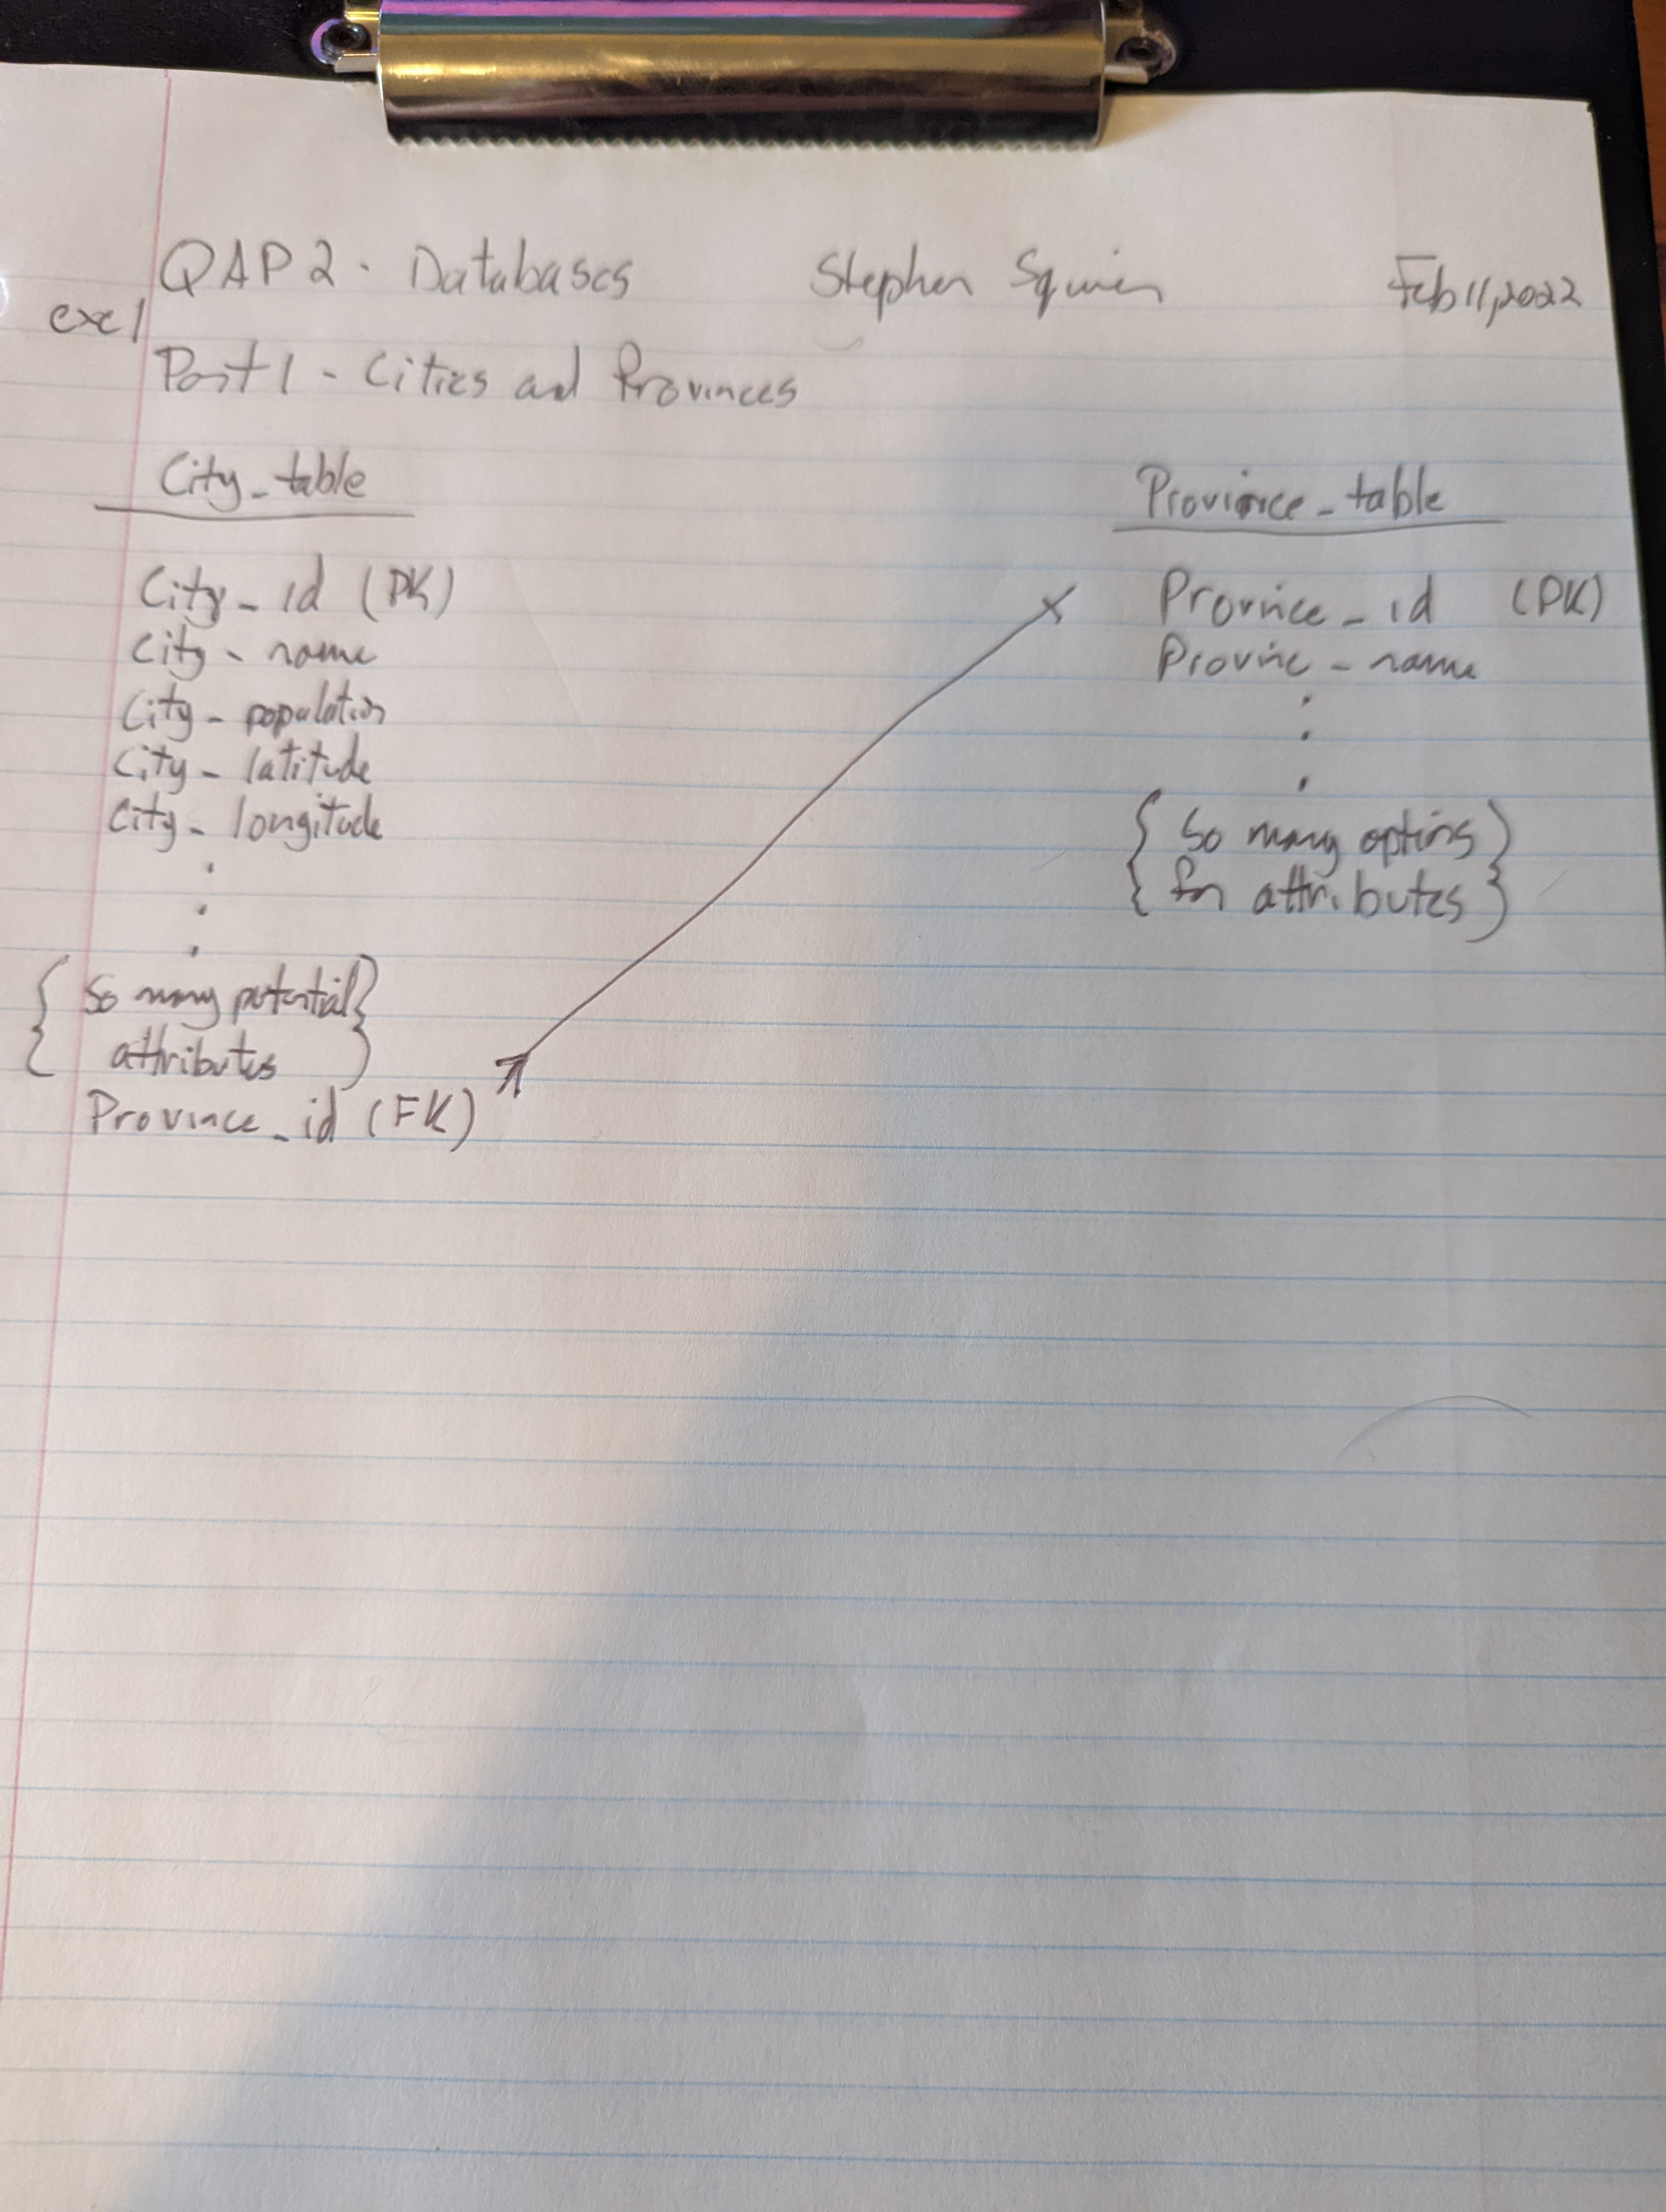 QAP 2 - Databases Stephen Feb 11, 2022
exe 1
Part 1 - Cities and Provinces
City_table
City_id (PK)
City_name
City_population
City_latitude
City_longitude
.
.
.
{ So many potential }
{ attributes }
Province_id (FK)
Province_table
Province_id (PK)
Provinc_name
.
.
.
{ So many options }
{ for attributes }